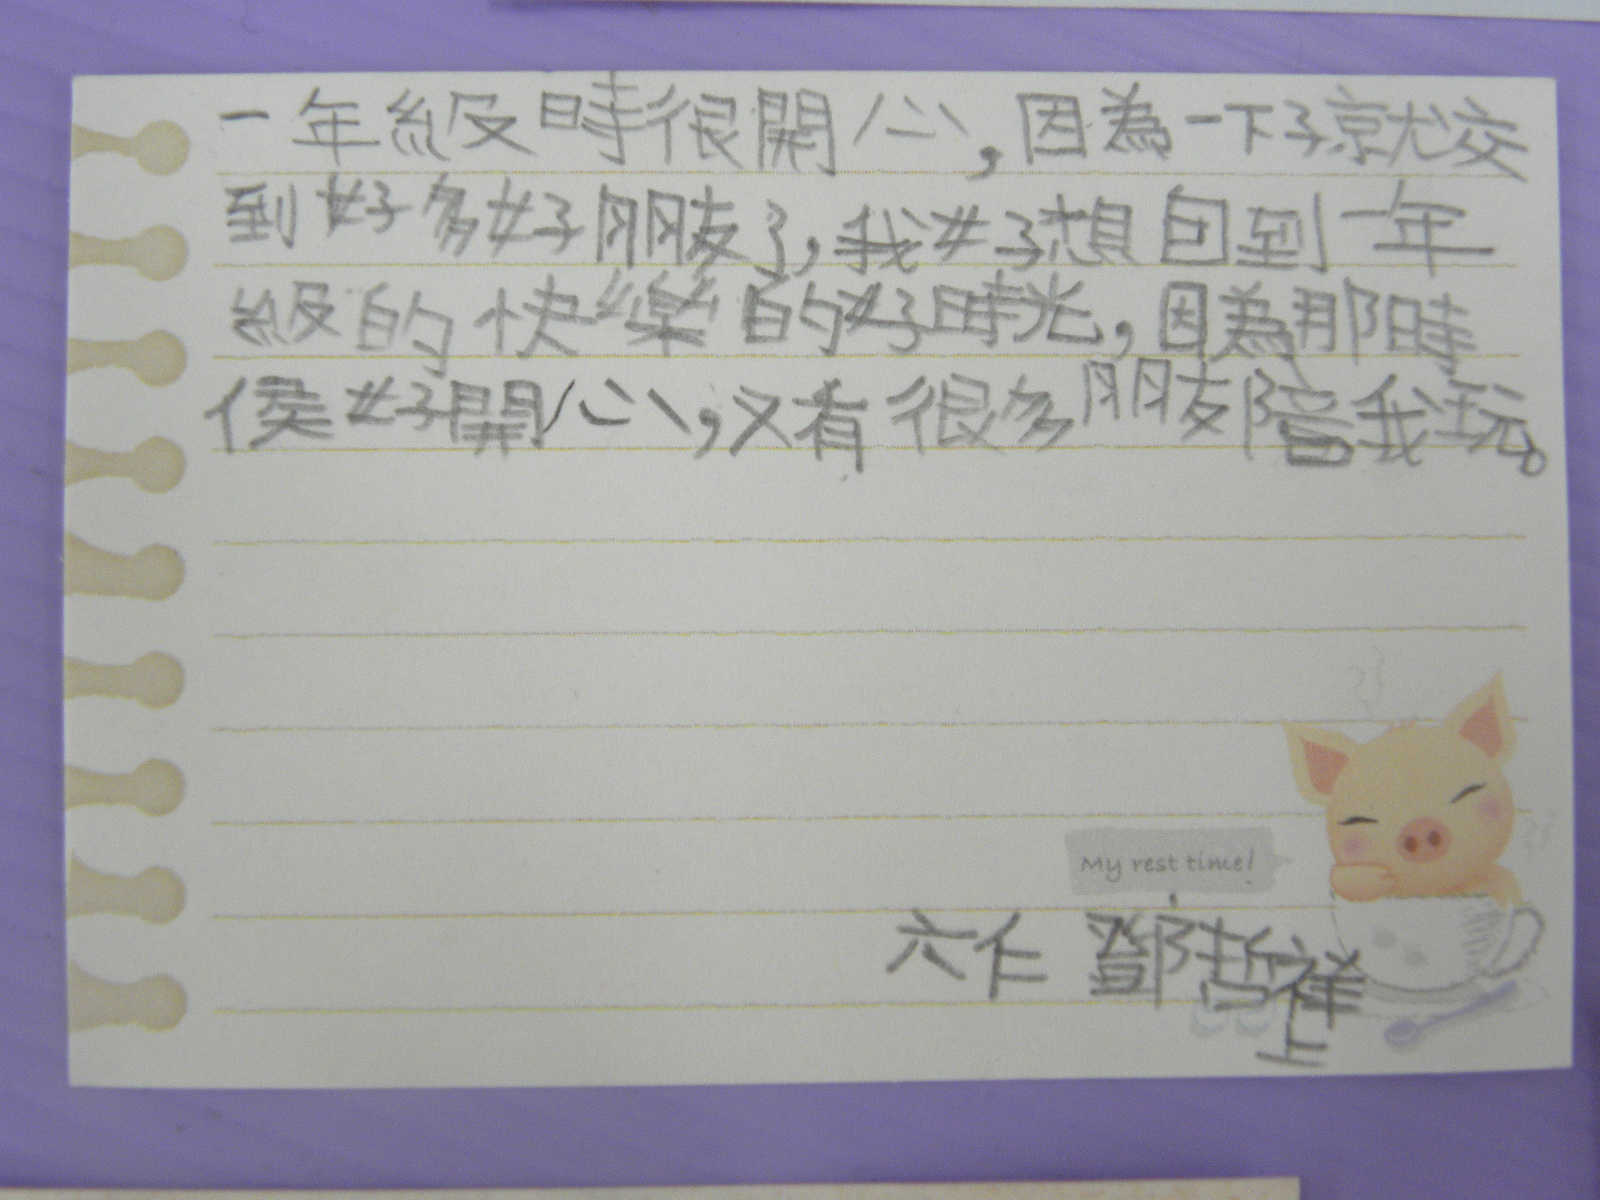 一年級時很開心,因為一下子就交
到好多好朋友了,我好想回到一年
級的快樂的好時光,因為那時
侯好開心,又有很多朋友陪我玩。
My rest time!
六仁 鄧哲祥
上